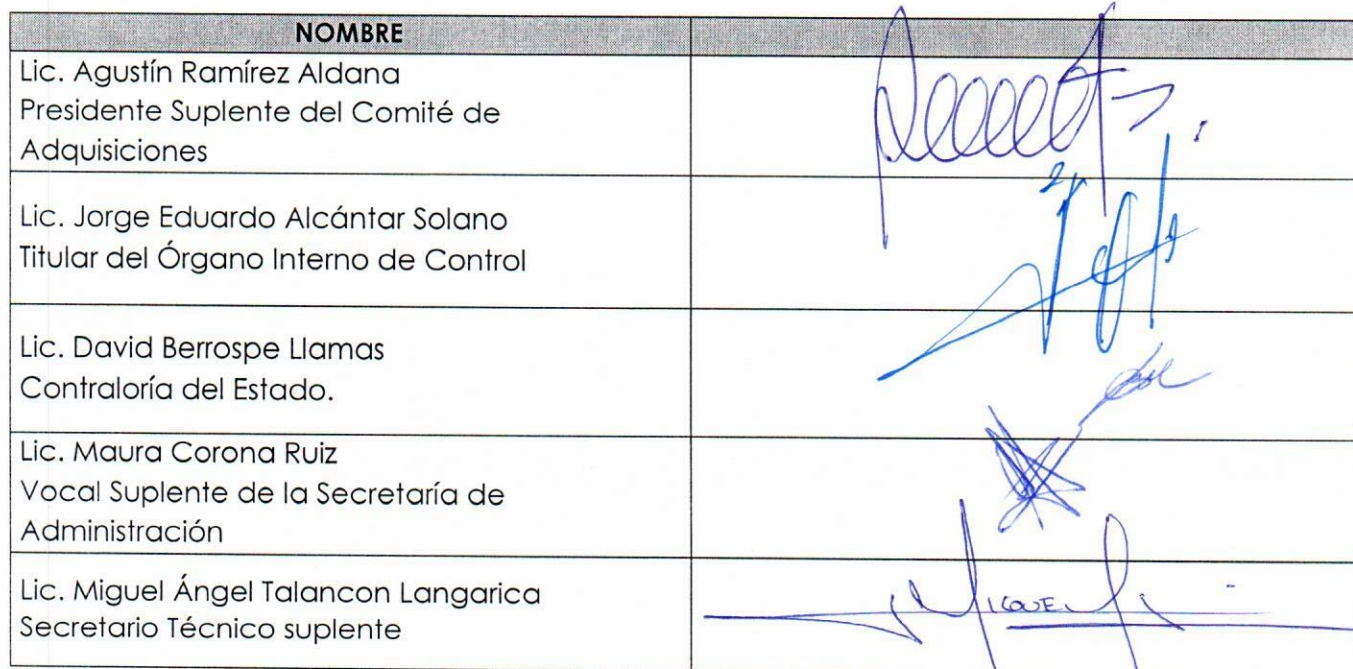 NOMBRE
Lic. Agustín Ramírez Aldana
Presidente Suplente del Comité de
Adquisiciones
Lic. Jorge Eduardo Alcántar Solano
Titular del Órgano Interno de Control
Lic. David Berrospe Llamas
Contraloría del Estado.
Lic. Maura Corona Ruiz
Vocal Suplente de la Secretaría de
Administración
Lic. Miguel Ángel Talancon Langarica
Secretario Técnico suplente
MIGUEL